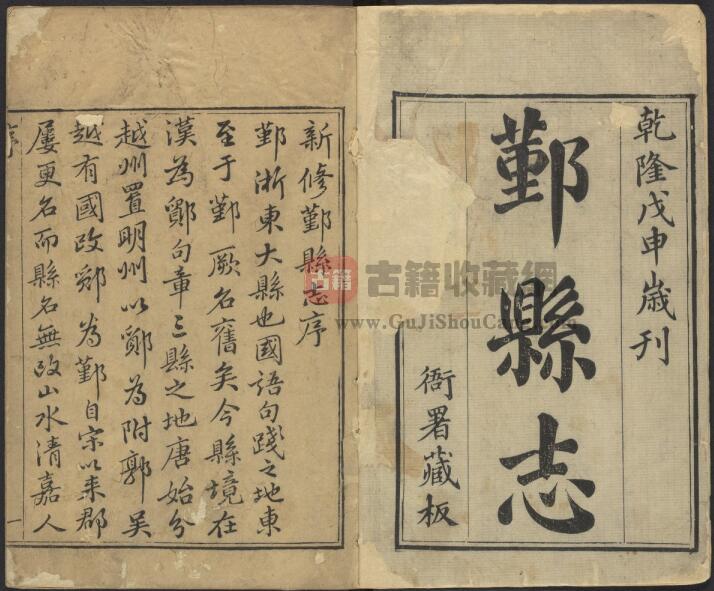 乾隆戊申歲刊
鄞縣志
衙署藏板
新修鄞縣志序
鄞浙東大縣也國語句踐之地東
至于鄞厥名舊矣今縣境在
漢為鄮句章三縣之地唐始分
越州置明州以鄮為附郭吳
越有國改鄮為鄞自宋以来郡
屢更名而縣名無改山水清嘉人
序
一
古籍 古籍收藏網
www.GuJiShouCa